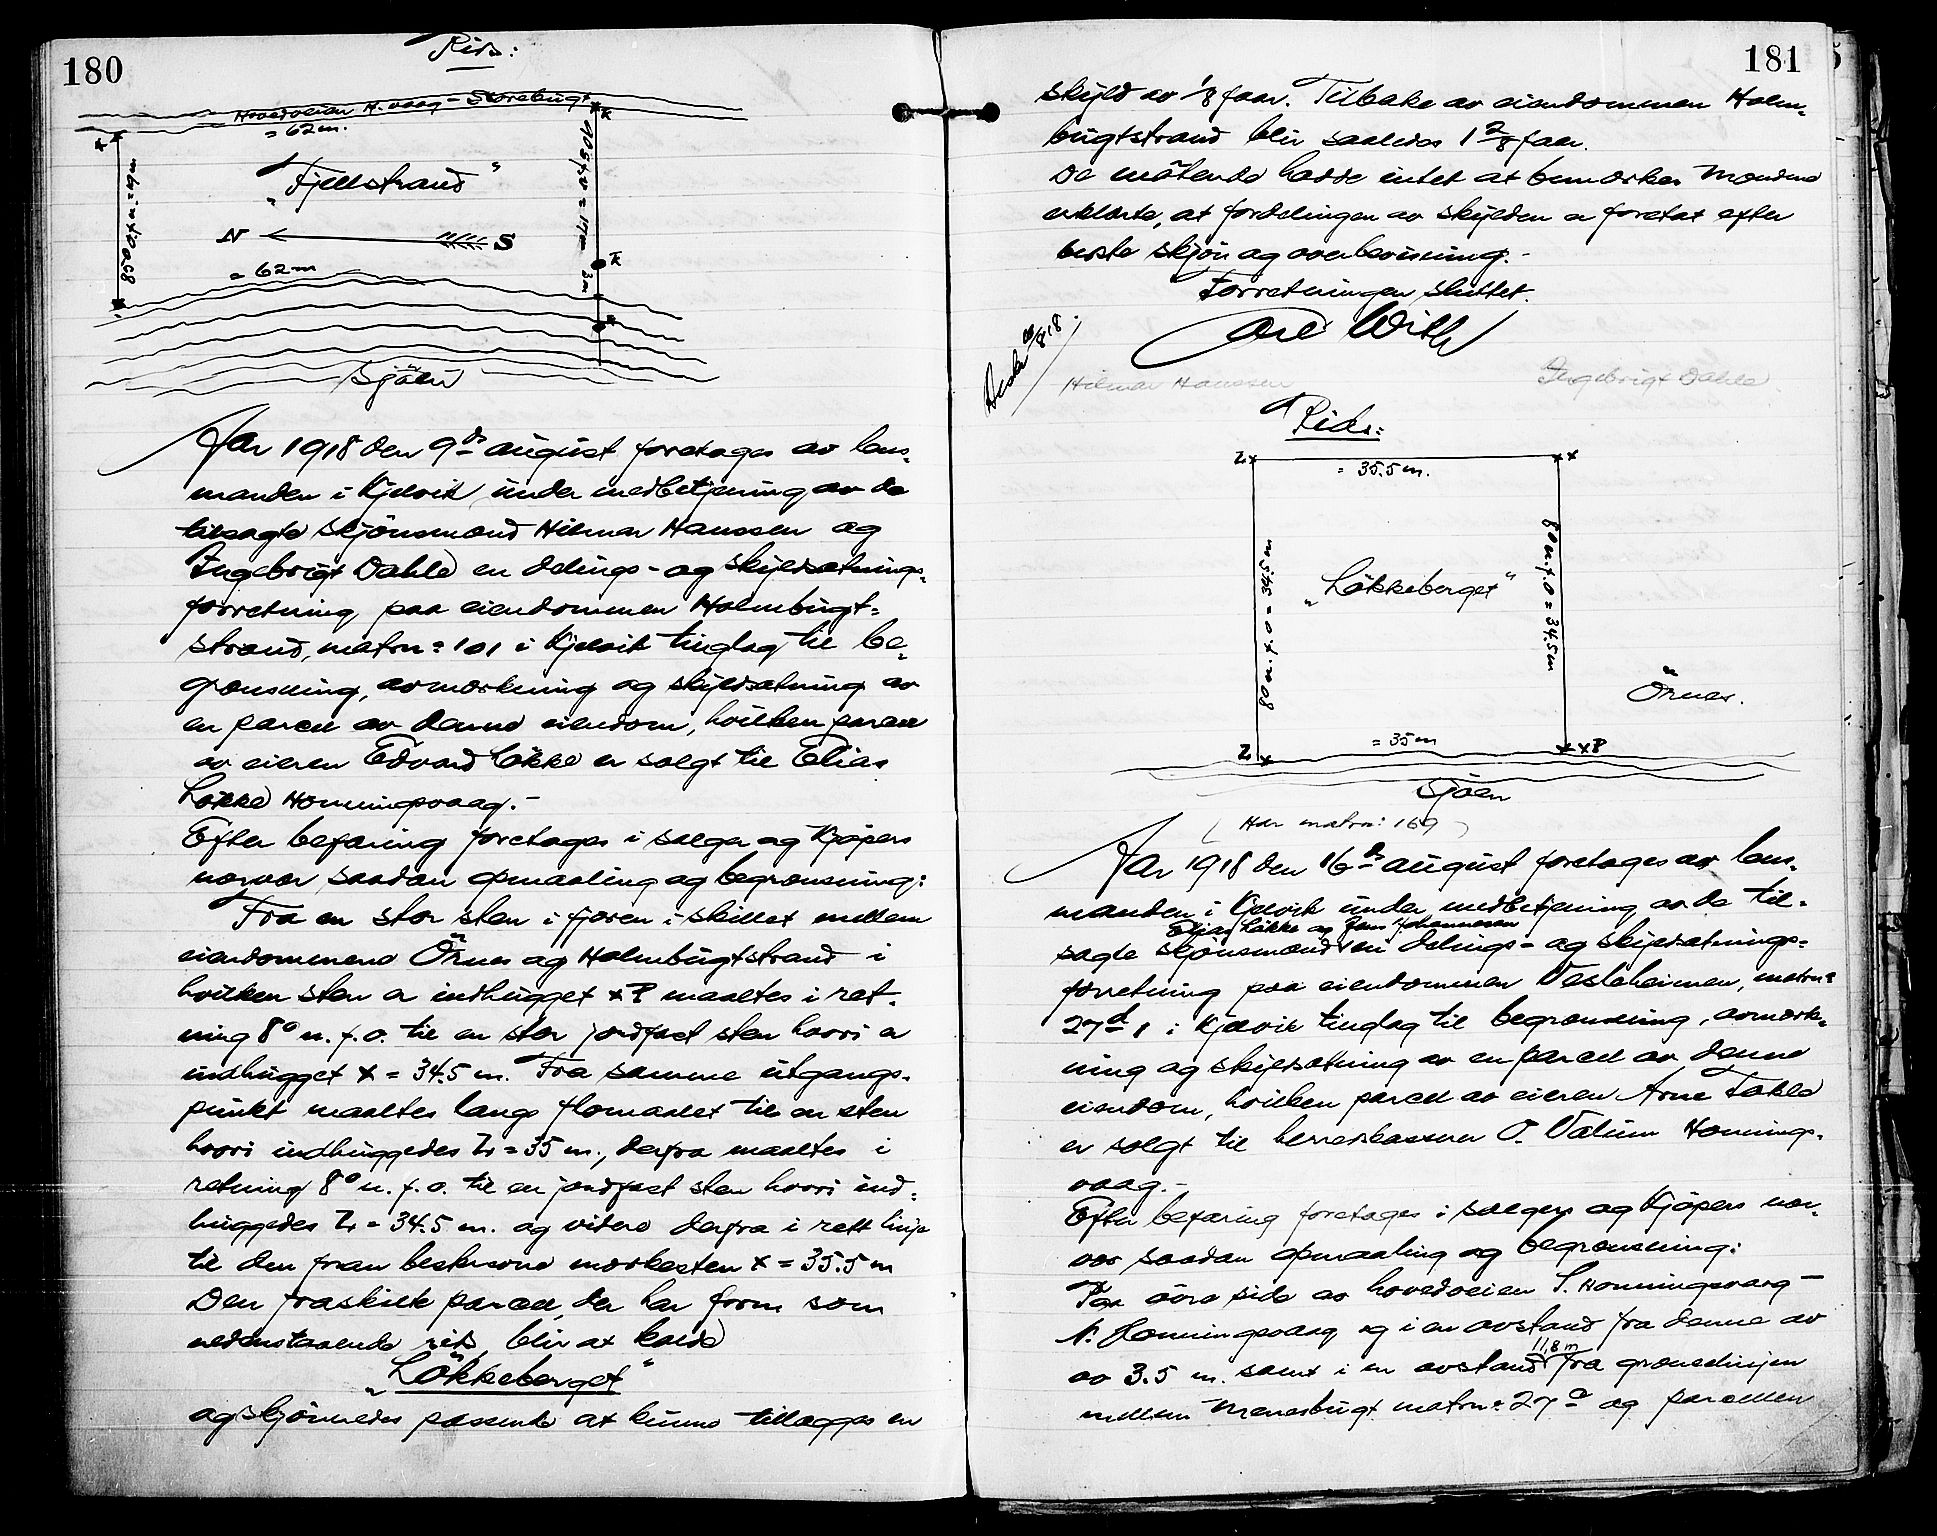 180
Rids:
Hovedveien H.vaag - Storebugt
= 62 m.
"Fjellstrand"
N S
= 62 m
3 m
Sjøen
Aar 1918 den 9de august foretages av lens-
manden i Kjelvik under medbetjening av de
tilsagte skjönsmænd Hilmar Hanssen og
Ingebrigt Dahle en delings- og skyldsætnings-
forretning paa eiendommen Holmbugt-
strand, matrn: 101 i Kjelvik tinglag til be-
grænsning, avmerkning og skyldsætning av
en parcel av denne eiendom, hvilken parcel
av eieren Edvard Løkke er solgt til Elias
Løkke Honningsvaag.-
Efter befaring foretages i sælger og kjøpers
nærvær saadan opmaaling og begrænsning:
Fra en stor sten i fjæren i skillet mellem
eiendommene Örnes og Holmbugtstrand i
hvilken sten er indhugget x P maaltes i ret-
ning 8° n.f.o. til en stor jordfast sten hvori er
indhugget x = 34.5 m. Fra samme utgangs-
punkt maaltes langs flomaalet til en sten
hvori indhuggedes L = 35 m., derfra maaltes i
retning 8° n.f.o. til en jordfast sten hvori ind-
huggedes L = 34.5 m. og videre derfra i rett linje
til den fran beskrevne merkesten x = 35.5 m
Den fraskilte parcel, der har form som
nedenstaaende rids, blir at kalde
"Løkkeberget"
og skjønnedes passende at kunne tillægges en
181
skyld av 1/8 faar. Tilbake av eiendommen Holm-
bugtstrand blir saaledes 1 2/8 faar.
De møtende hadde intet at bemærke. Mændene
erklærte, at fordelingen av skylden er foretat efter
beste skjøn og overbevisning.-
Forretningen sluttet.
Hilmar Hanssen Ingebrigt Dahle
Rids:
= 35.5 m.
80 n.f.o = 34.5 m
80 n.f.o = 34.5 m
"Løkkeberget"
Örnes.
= 35 m
Sjøen
(Har matrn: 169)
Aar 1918 den 16de august foretages av lens-
manden i Kjelvik under medbetjening av de til-
Elias Løkke og Jens Johannesen
sagte skjønsmænd en delings- og skyldsætnings-
forretning paa eiendommen Vesleheimen, matrn:
27 d 1 i Kjelvik tinglag til begrænsning, avmerk-
ning og skyldsætning av en parcel av denne
eiendom, hvilken parcel av eieren Arne Takle
er solgt til herredskasserer O. Valium Honnings-
vaag.-
Efter befaring foretages i sælgers og kjøpers nær-
vær saadan opmaaling og begrænsning:
Paa øvre side av hovedveien S. Honningsvaag -
N. Honningsvaag og i en avstand fra denne av
11,8 m
av 3.5 m. samt i en avstand fra grænselinjen
mellem Menesbugt matrn: 27 a og parcellen